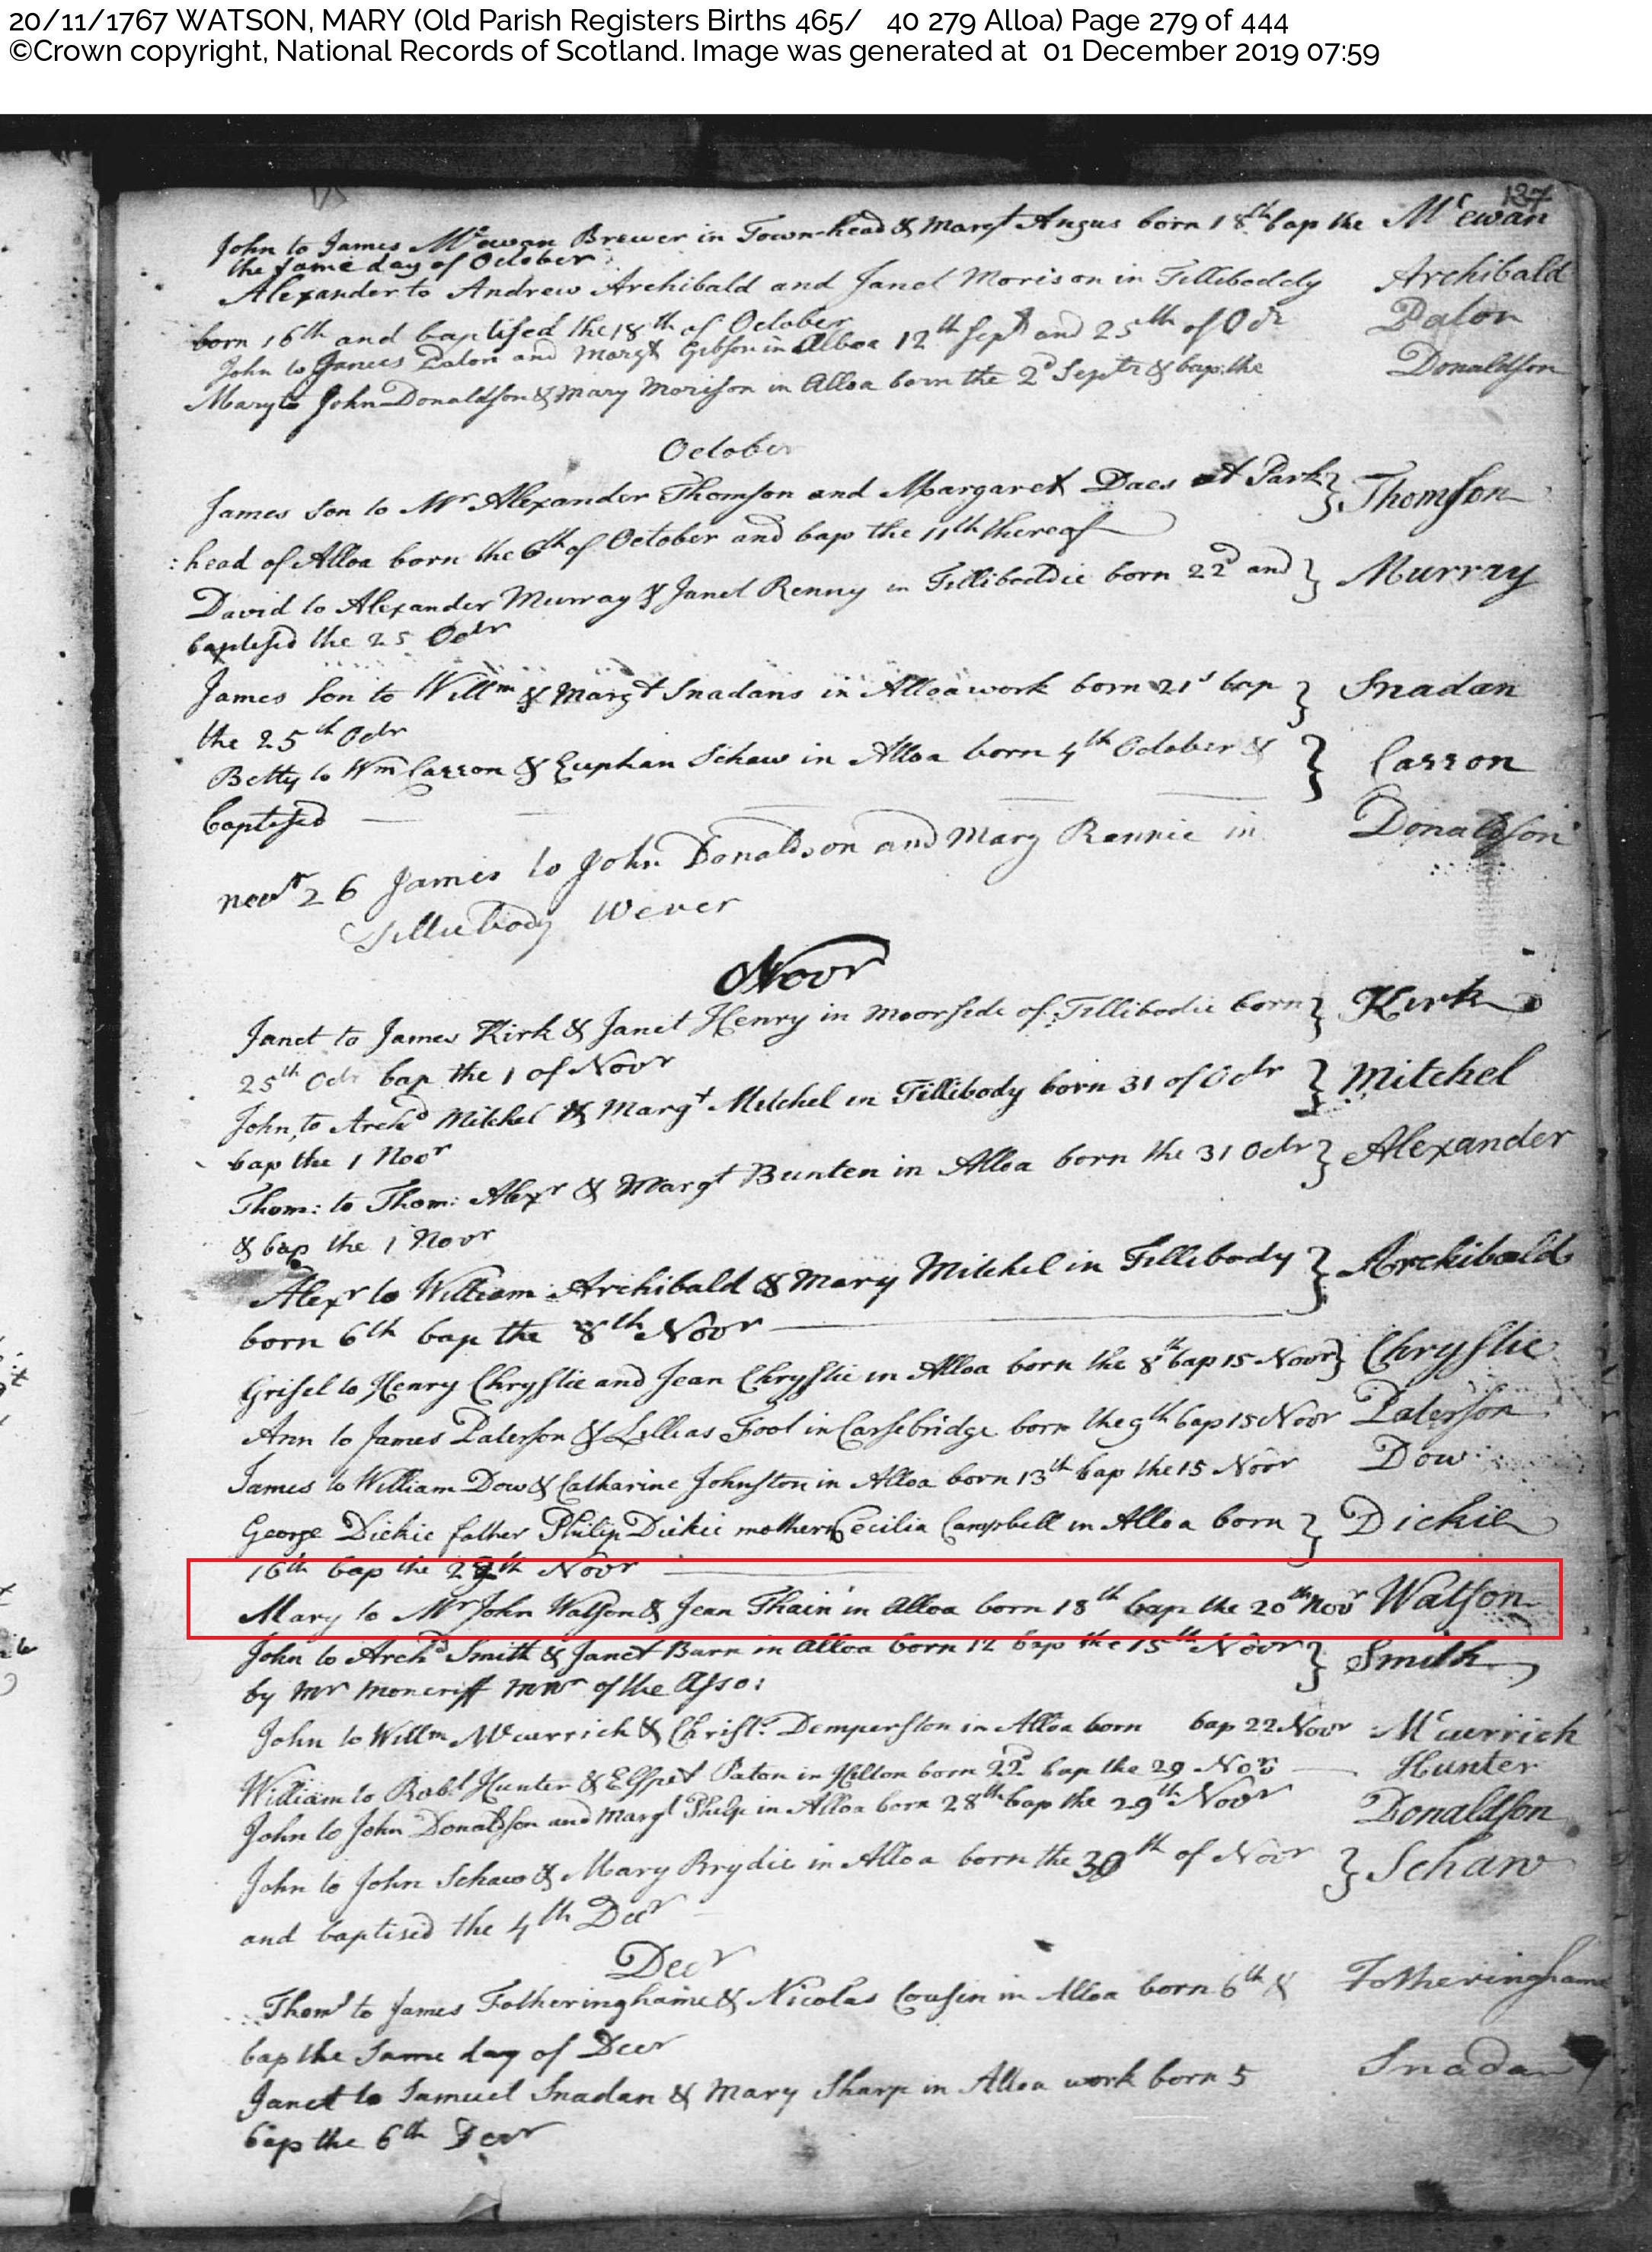 20/11/1767 WATSON, MARY (Old Parish Registers Births 465/ 40 279 Alloa) Page 279 of 444
©Crown copyright, National Records of Scotland. Image was generated at 01 December 2019 07:59
137
John to James Mcewan Brewer in Town-head & Margt Angus born 18th bap the Mc ewan
the same day of October
Alexander to Andrew Archibald and Janet Morison in Tilliboddy Archibald
born 16th and baptised the 18th of October
John to James Paton and Margt Gibson in Alloa 12th Sept and 25th of Octr Paton
Mary to John Donaldson & Mary Morison in Alloa born the 2d Septr & bap: the Donaldson
October
James Son to Mr Alexander Thomson and Margaret Daes at Park Thomson
: head of Alloa born the 6th of October and bap the 11th thereof
David to Alexander Murray & Janet Renny in Tilliboddie born 22d and Murray
baptised the 25 Octr
James Son to Willm & Margt Snadans in Alloawork born 21st bap Snadan
the 25th Octr
Betty to Wm Carron & Euphan Schaw in Alloa born 4th October & Carron
baptised
novr 26 James to John Donaldson and Mary Rennie in Donaldson
Tilliebody Wever
Novr
Janet to James Kirk & Janet Henry in Moorside of Tillibodie born Kirk
25th Octr bap the 1 of Novr
John to Archd Mitchel & Margt Mitchel in Tillibody born 31 of Octr Mitchel
bap the 1 Novr
Thom: to Thom: Alexr & Margt Bunten in Alloa born the 31 Octr Alexander
& bap the 1 Novr
Alexr to William Archibald & Mary Mitchel in Tillibody Archibald
born 6th bap the 8th Novr
Grisel to Henry Chrystie and Jean Chrystie in Alloa born the 8th bap 15 Novr Chrystie
Ann to James Paterson & Lillias Foot in Carsebridge born the 9th bap 15 Novr Paterson
James to William Dow & Catharine Johnston in Alloa born 13th bap the 15 Novr Dow
George Dickie father Philip Dickie mother Cecilia Campbell in Alloa born Dickie
16th bap the th Novr
Mary to Mr John Watson & Jean Thain in Alloa born 18th bap the 20th Novr Watson
John to Archd Smith & Janet Burn in Alloa born 12 bap the 15th Novr Smith
by Mr Moncriff Minr of the Asso:
John to Willm Mccurrich & Christ: Demperston in Alloa born bap 22 Novr Mccurrich
William to Robt Hunter & Elspet Paton in Hilton born 22d bap the 29 Novr Hunter
John to John Donaldson and Margt Philp in Alloa born 28th bap the 29th Novr Donaldson
John to John Schaw & Mary Brydie in Alloa born the 30th of Novr Schaw
and baptised the 4th Decr
Decr
Thoms to James Fotheringhame & Nicolas Cousin in Alloa born 6th & Fotheringhame
bap the Same day of Decr
Janet to Samuel Snadan & Mary Sharp in Alloa work born 5 Snadan
bap the 6th Decr